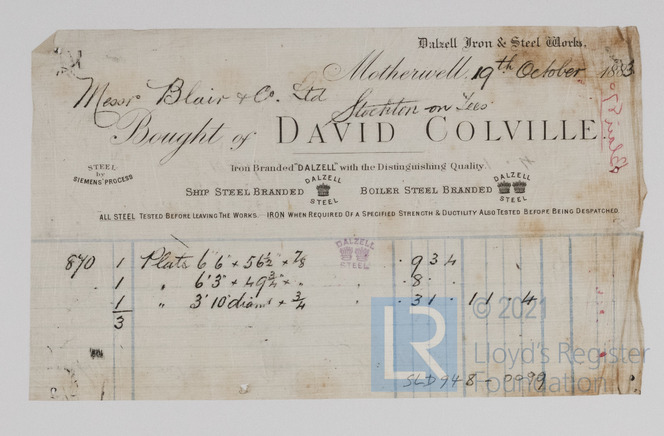 Dalzell Iron & Steel Works,
Motherwell, 19th October 1883
Messrs Blair & Co. Ltd
Stockton on Tees
Bought of DAVID COLVILLE
STEEL by SIEMENS' PROCESS
Iron Branded "DALZELL" with the Distinguishing Quality.
SHIP STEEL BRANDED DALZELL STEEL BOILER STEEL BRANDED DALZELL STEEL
ALL STEEL TESTED BEFORE LEAVING THE WORKS. IRON WHEN REQUIRED OF A SPECIFIED STRENGTH & DUCTILITY ALSO TESTED BEFORE BEING DESPATCHED.
DALZELL STEEL
870 1 Plate 6'6" x 56½ x 7/8 9 3 4
1 " 6'3" x 49¾ x " 8
1 " 3'10 diamr x ¾ 31 11 4
3
© 2021
LR Lloyd's Register
Foundation
SLD948-0099